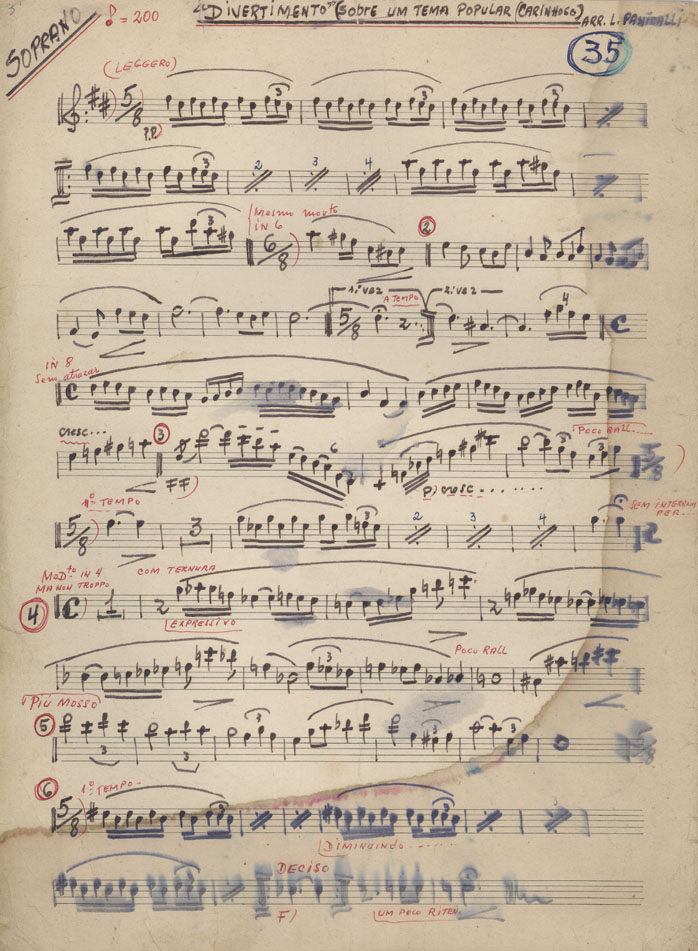 SOPRANO
♪ = 200
"DIVERTIMENTO" (SOBRE UM TEMA POPULAR (CARINHOSO)
ARR. L. PANICALLI
35
(LEGGERO)
5/8
3 3 3
P.P.
3 2 3 4
3
(MESMO MOVTO
IN 6
6/8
2
1ª VEZ
A TEMPO
2ª VEZ
5/8
4
C
IN 8
C
CRESC...
3
6
3
POCO RALL......
5/8
FF)
P) CRESC.......
1º TEMPO
5/8
3
3
2 3 4
SEM INTERROM
PER...
MODTO IN 4
MA NON TROPPO
COM TERNURA
4
C
1
2
2
EXPRESSIVO
3
POCO RALL
PIÚ MOSSO
5
3 3 3 3 3
5/8
6
1º TEMPO-
5/8
3
3
DIMINUINDO......
DECISO
F)
UM POCO RITEN.